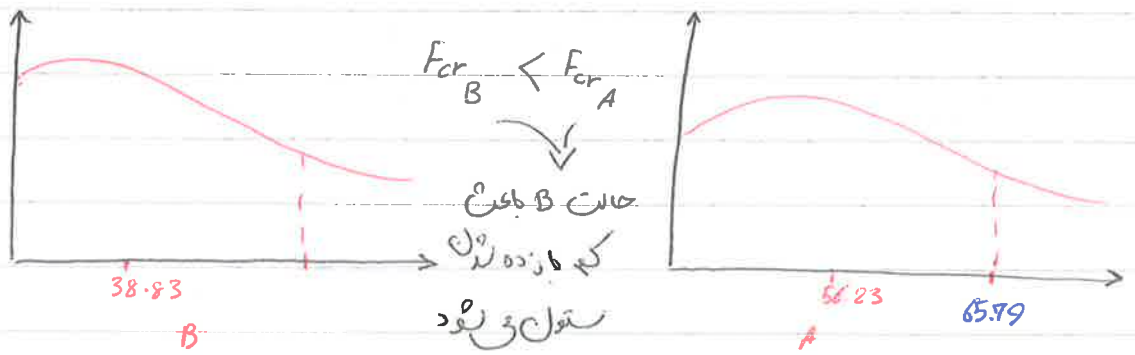 F_cr_B < F_cr_A
حالت B باعث
کم بازده شدن
ستون می شود
38.83
B
56.23
65.79
A